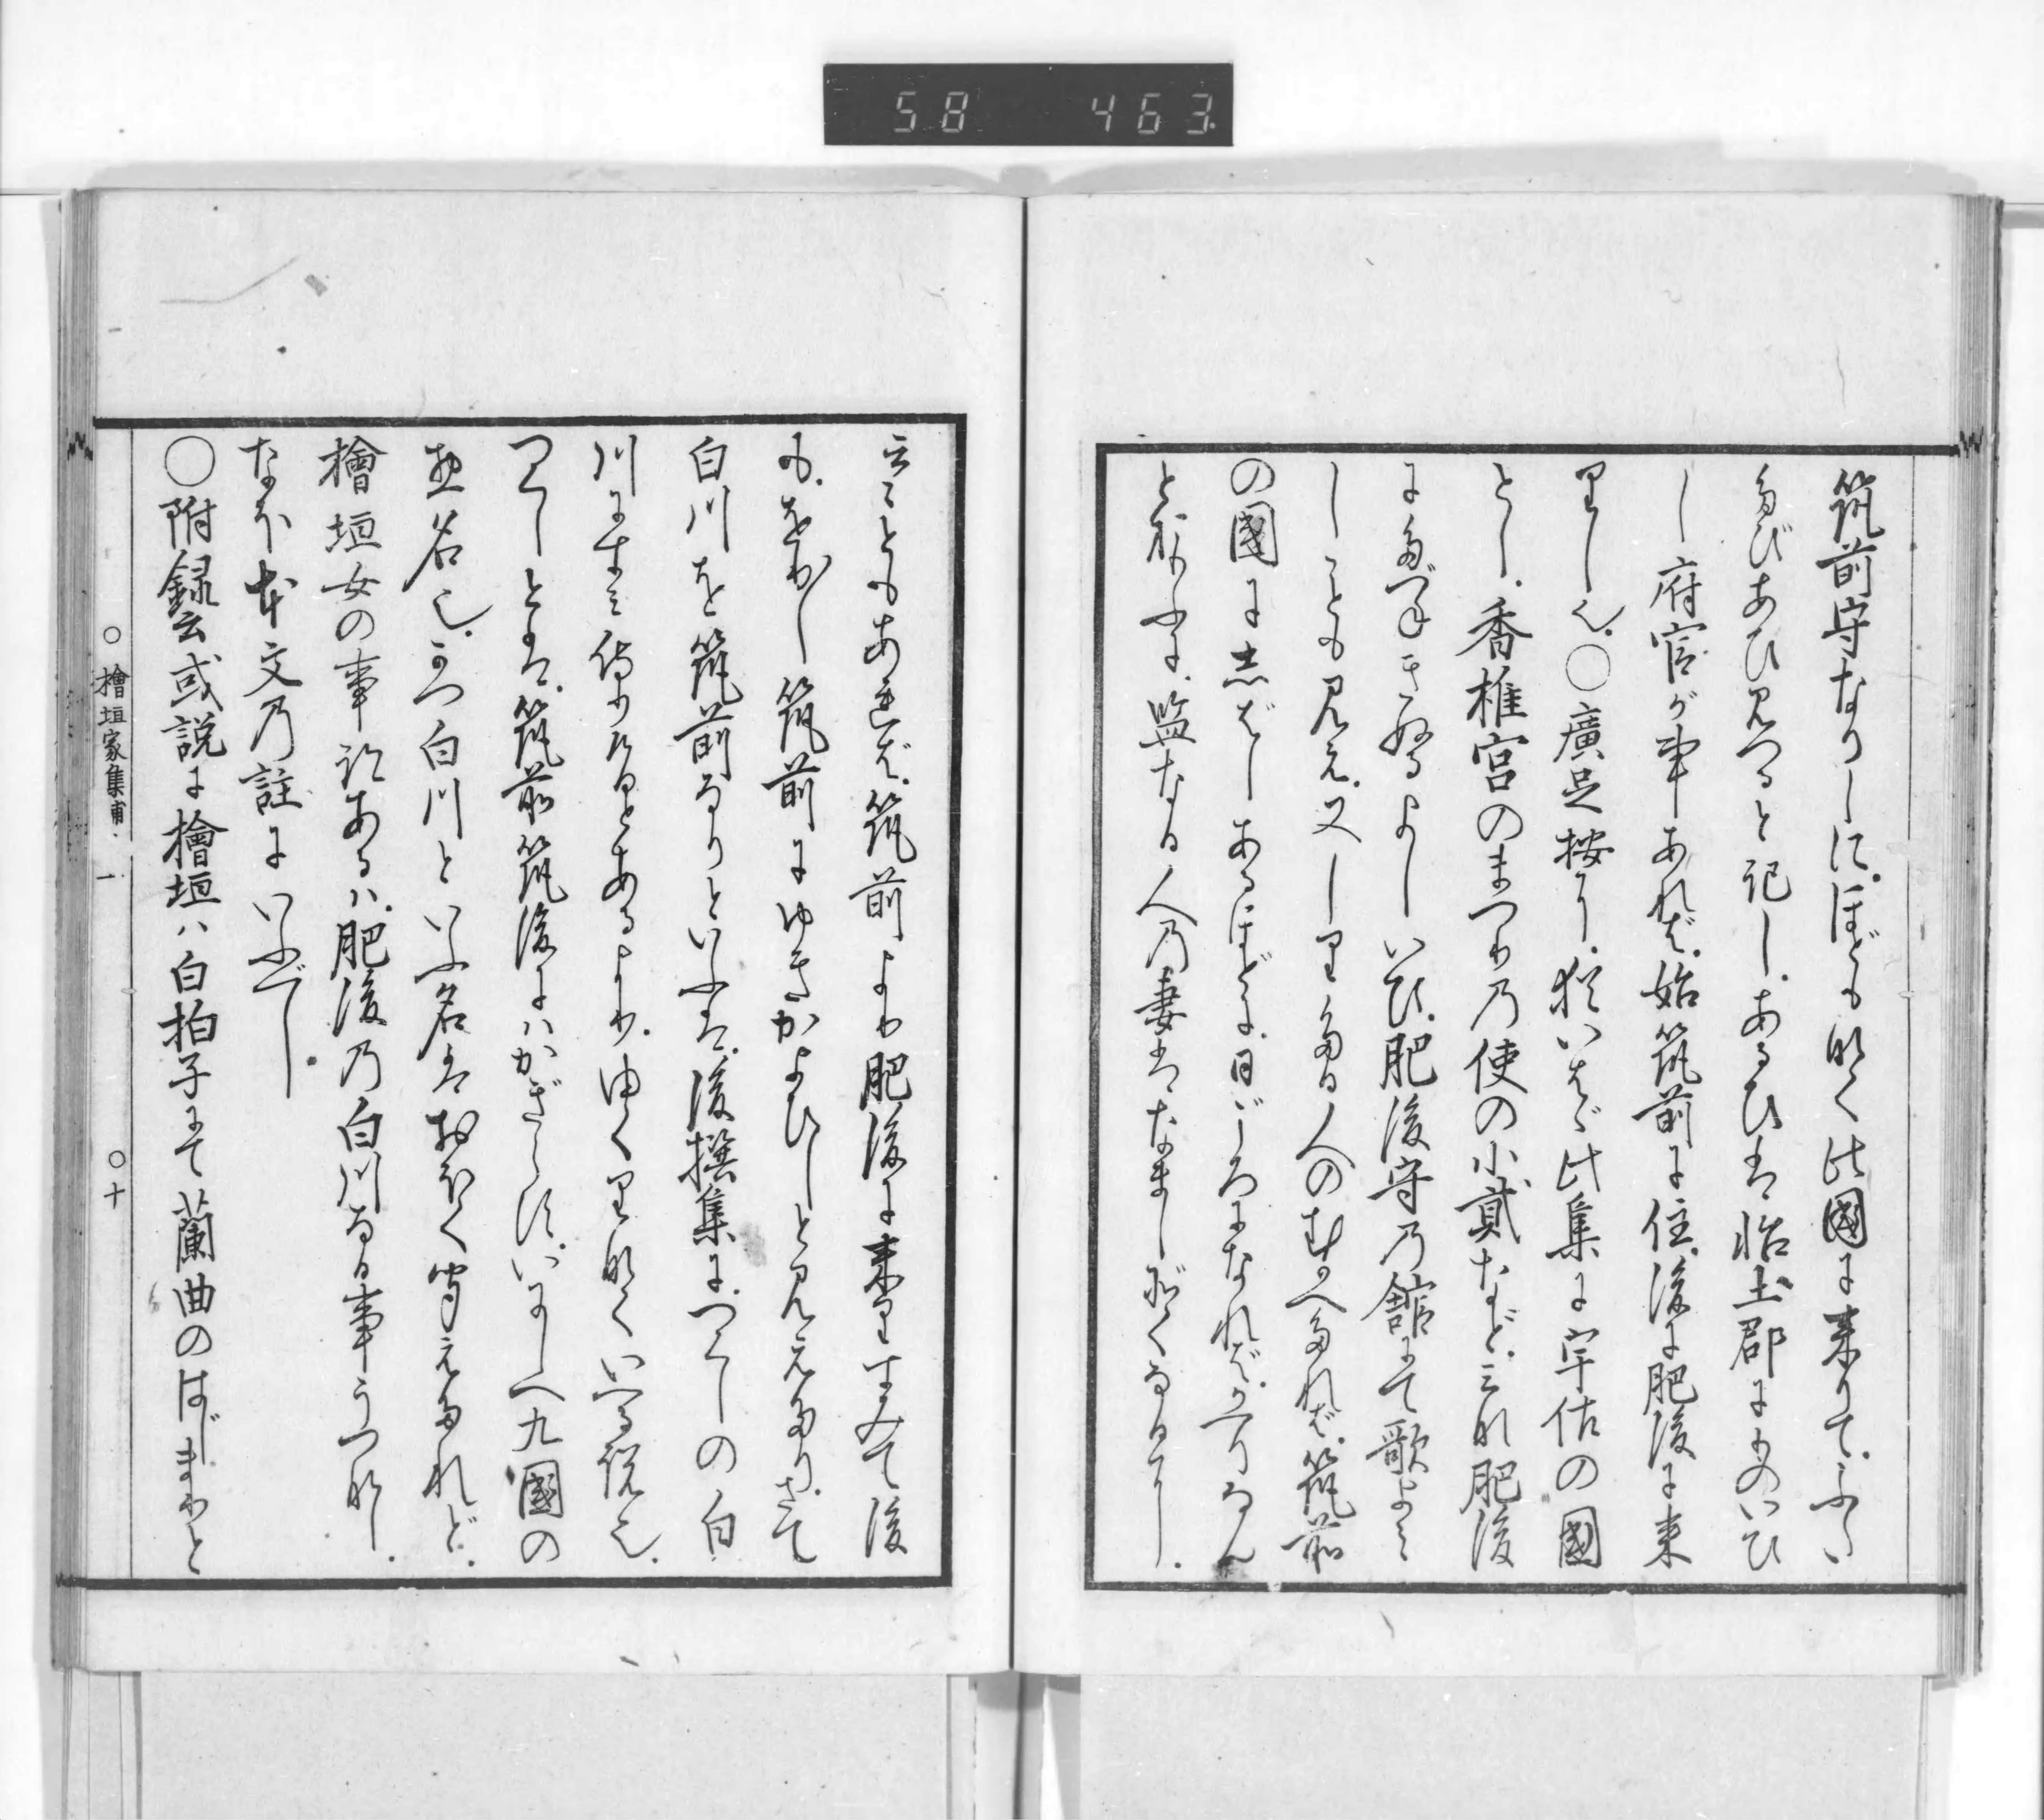 58 463
筑前守なりしに。ほども无く此國に来りて。ふた
たびあひ見つると記し。あるひは怡土郡にものいひ
し府官が事あれば。始筑前に住。後に肥後に来
りし也。○廣足按に。猶いはゞ此集に宇佐の國
とし。香椎宮のまつり乃使の小貳など。三れ肥後
にたづね来るよしいひ。肥後守乃館にて歌よミ
しことも見え。又しりたる人のむかへたれば。筑前
の國に志ばしあるほどに。日ごろになれば。かへりなん
といふに。監なる人乃妻はなまし
云ことゝもあれば。筑前より肥後に来りすみて後
も。をり〳〵筑前にゆきかよひしと見えたり。さて
白川を筑前なりといふは。後撰集に。つくしの白
川にすミ侍りけるとあるより。ゆくり无くいへる説也。
つくしとは。筑前筑後にハかぎらず。いにしへ九國の
惣名也。かつ白川といふ名はおほく聞えたれど。
檜垣女の事跡あるハ。肥後乃白川なる事うつ无し。
なほ本文乃註にいふべし。
○附録云或説に檜垣ハ白拍子にて蘭曲のはじまりと
○檜垣家集甫 一 ○十